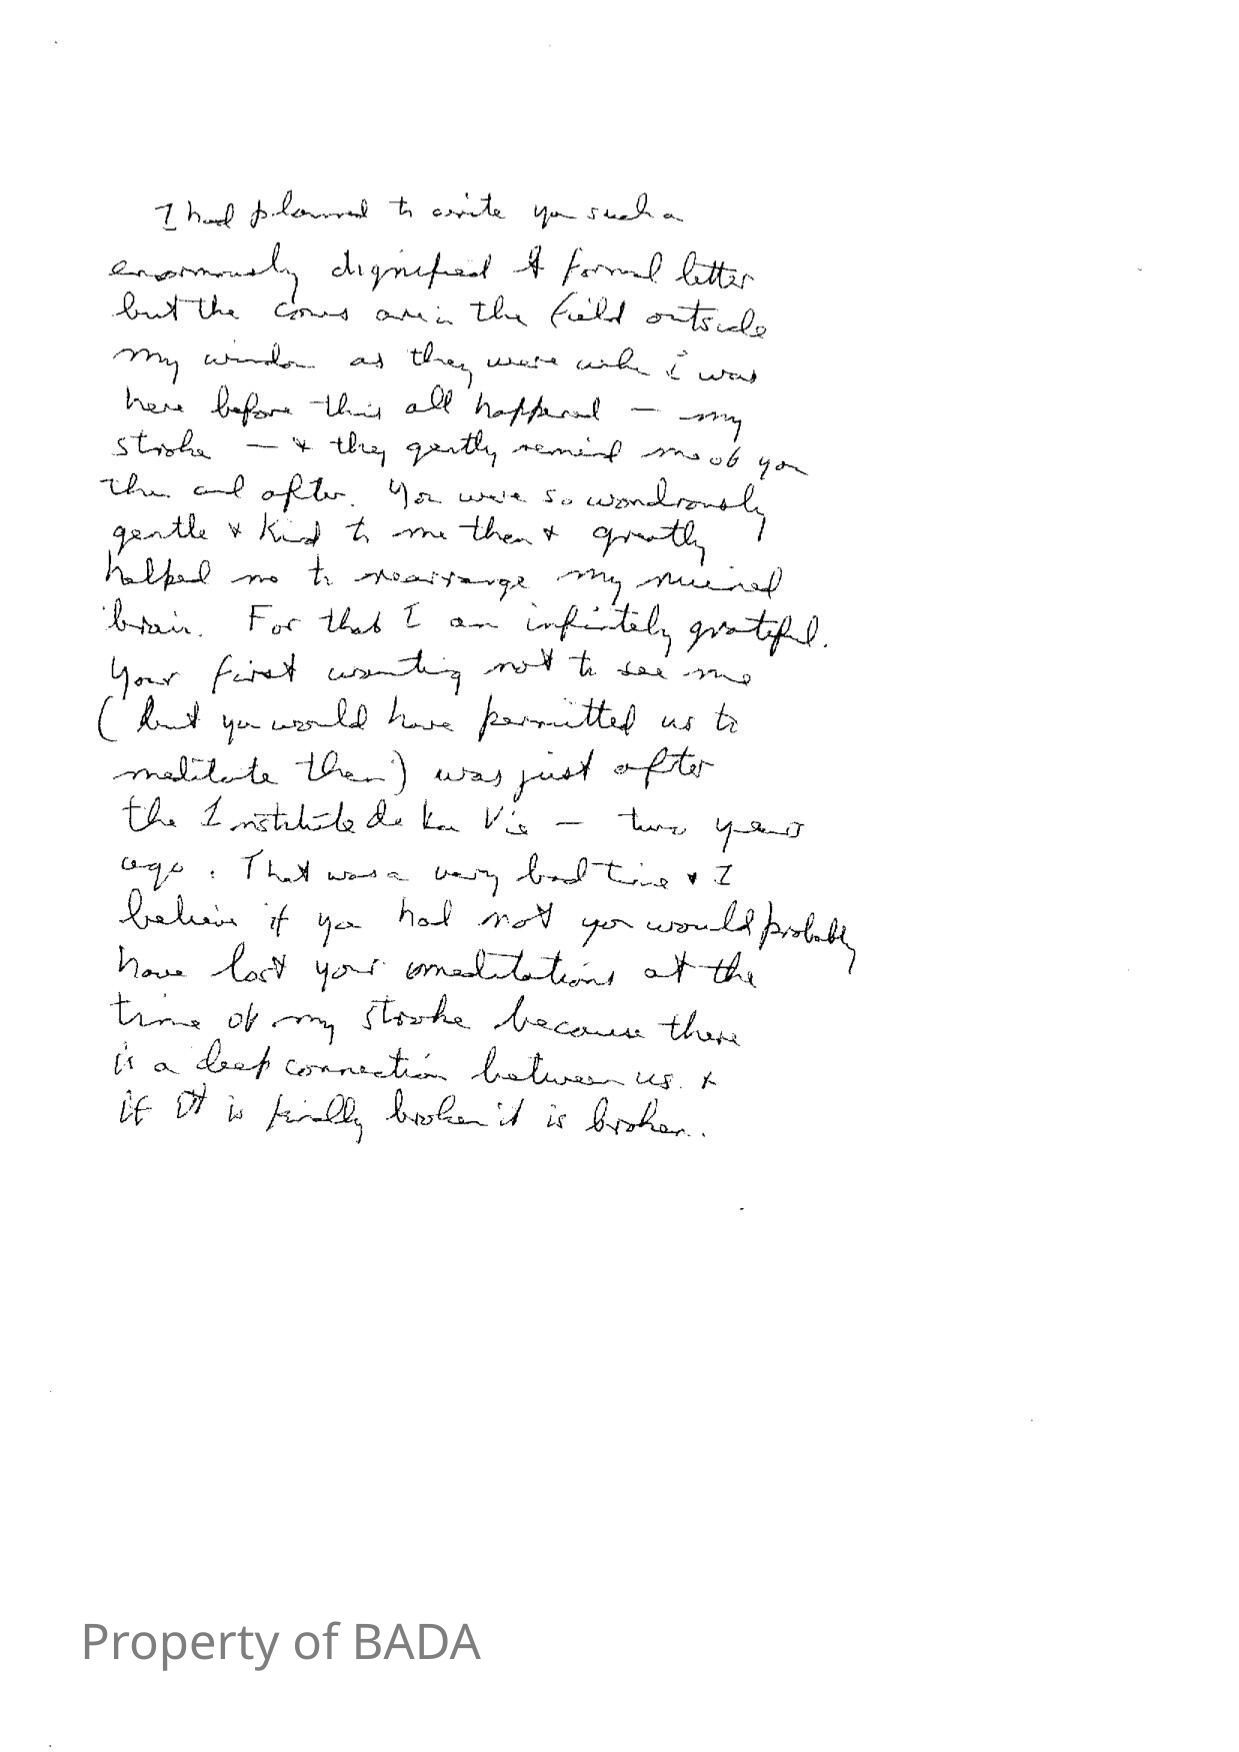 I had planned to write you such a
enormously dignified & formal letter
but the cows are in the field outside
my window as they were when i was
here before this all happened — my
stroke — & they gently remind me of you
then and after. You were so wondrously
gentle & kind to me then & greatly
helped me to rearrange my ruined
brain. For that I am infinitely grateful.
Your first wanting not to see me
(but you would have permitted us to
meditate then) was just after
the Institute de La Vie — two years
ago. That was a very bad time & I
believe if you had not you would probably
have lost your meditations at the
time of my stroke because there
is a deep connection between us. &
if it is finally broken it is broken.
Property of BADA